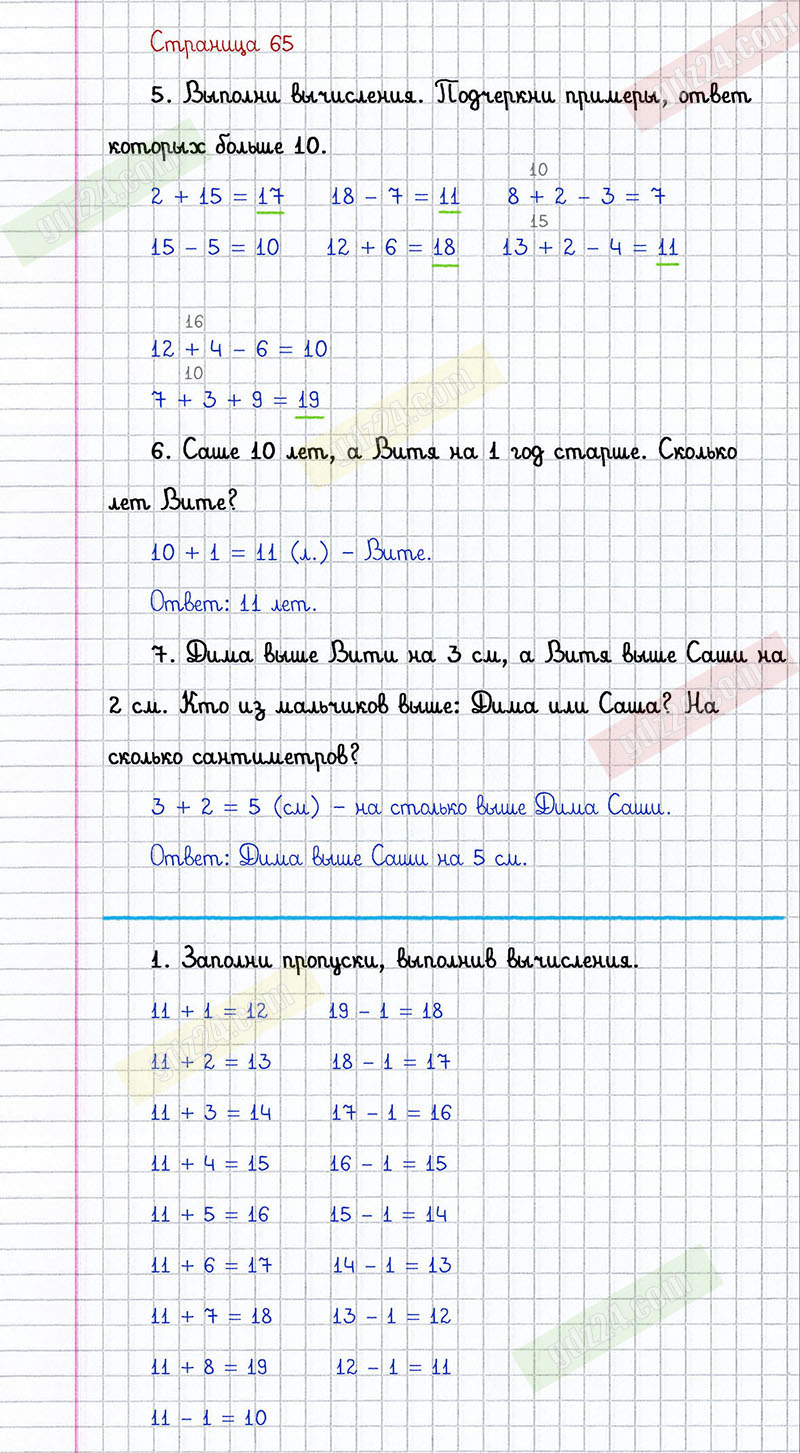 Страница 65
5. Выполни вычисления. Подчеркни примеры, ответ
которых больше 10.
10
2 + 15 = 17 18 - 7 = 11 8 + 2 - 3 = 7
15
15 - 5 = 10 12 + 6 = 18 13 + 2 - 4 = 11
16
12 + 4 - 6 = 10
10
7 + 3 + 9 = 19
6. Саше 10 лет, а Витя на 1 год старше. Сколько
лет Вите?
10 + 1 = 11 (л.) - Вите.
Ответ: 11 лет.
7. Дима выше Вити на 3 см, а Витя выше Саши на
2 см. Кто из мальчиков выше: Дима или Саша? На
сколько сантиметров?
3 + 2 = 5 (см) - на столько выше Дима Саши.
Ответ: Дима выше Саши на 5 см.
1. Заполни пропуски, выполнив вычисления.
11 + 1 = 12 19 - 1 = 18
11 + 2 = 13 18 - 1 = 17
11 + 3 = 14 17 - 1 = 16
11 + 4 = 15 16 - 1 = 15
11 + 5 = 16 15 - 1 = 14
11 + 6 = 17 14 - 1 = 13
11 + 7 = 18 13 - 1 = 12
11 + 8 = 19 12 - 1 = 11
11 - 1 = 10
gdz24.com
gdz24.com
gdz24.com
gdz24.com
gdz24.com
gdz24.com